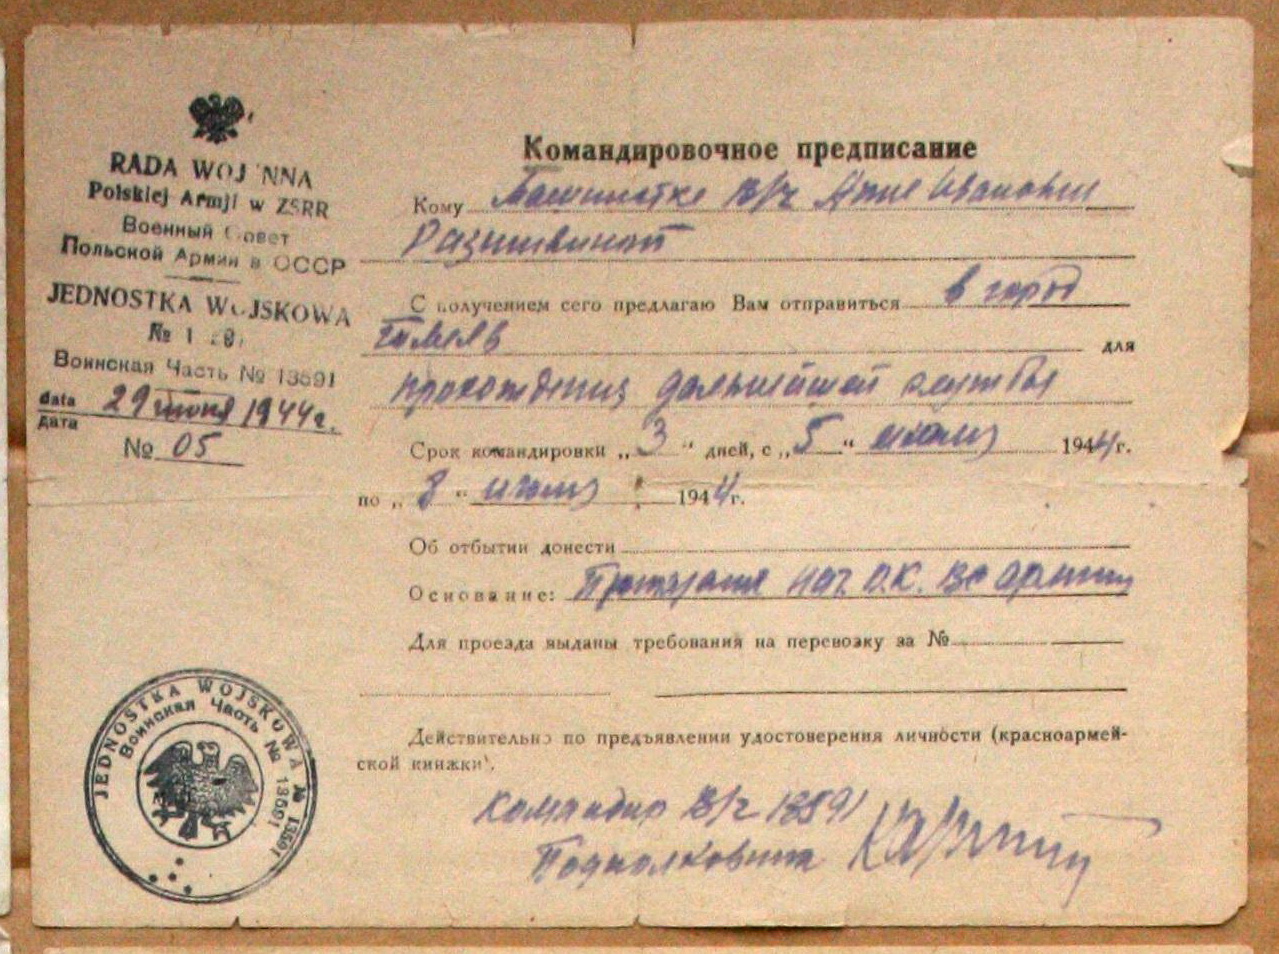 RADA WOJENNA
Polskiej Armji w ZSRR
Военный Совет
Польской Армии в СССР
JEDNOSTKA WOJSKOWA
№ 1
Воинская Часть № 13591
data
дата 29 июня 1944 г.
№ 05
Командировочное предписание
Кому Машинистке в/ч Анне Ивановне
С получением сего предлагаю Вам отправиться в город
Гомель для
прохождения дальнейшей службы
Срок командировки „3“ дней, с „5“ июля 1944 г.
по „8“ июля 1944 г.
Об отбытии донести
Основание: нач. О.К. армии
Для проезда выданы требования на перевозку за №
Действительно по предъявлении удостоверения личности (красноармей-
ской книжки).
Командир в/ч 13591
Подполковник
JEDNOSTKA WOJSKOWA № 13591
Воинская Часть № 13591